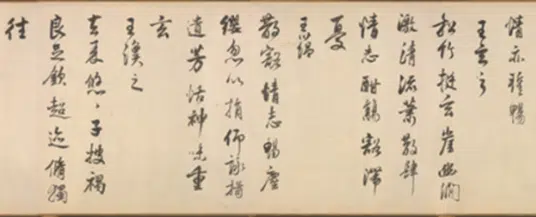 情亦暫暢
王玄之
松竹挺玄崖幽澗
激清流蕭散肆
情志酣觴豁滯
憂
王蘊
散豁情志暢塵
纓忽以捐仰詠挹
遺芳怡神味重
玄
王渙之
去來悠悠子披褐
良足欽超迹脩獨
往